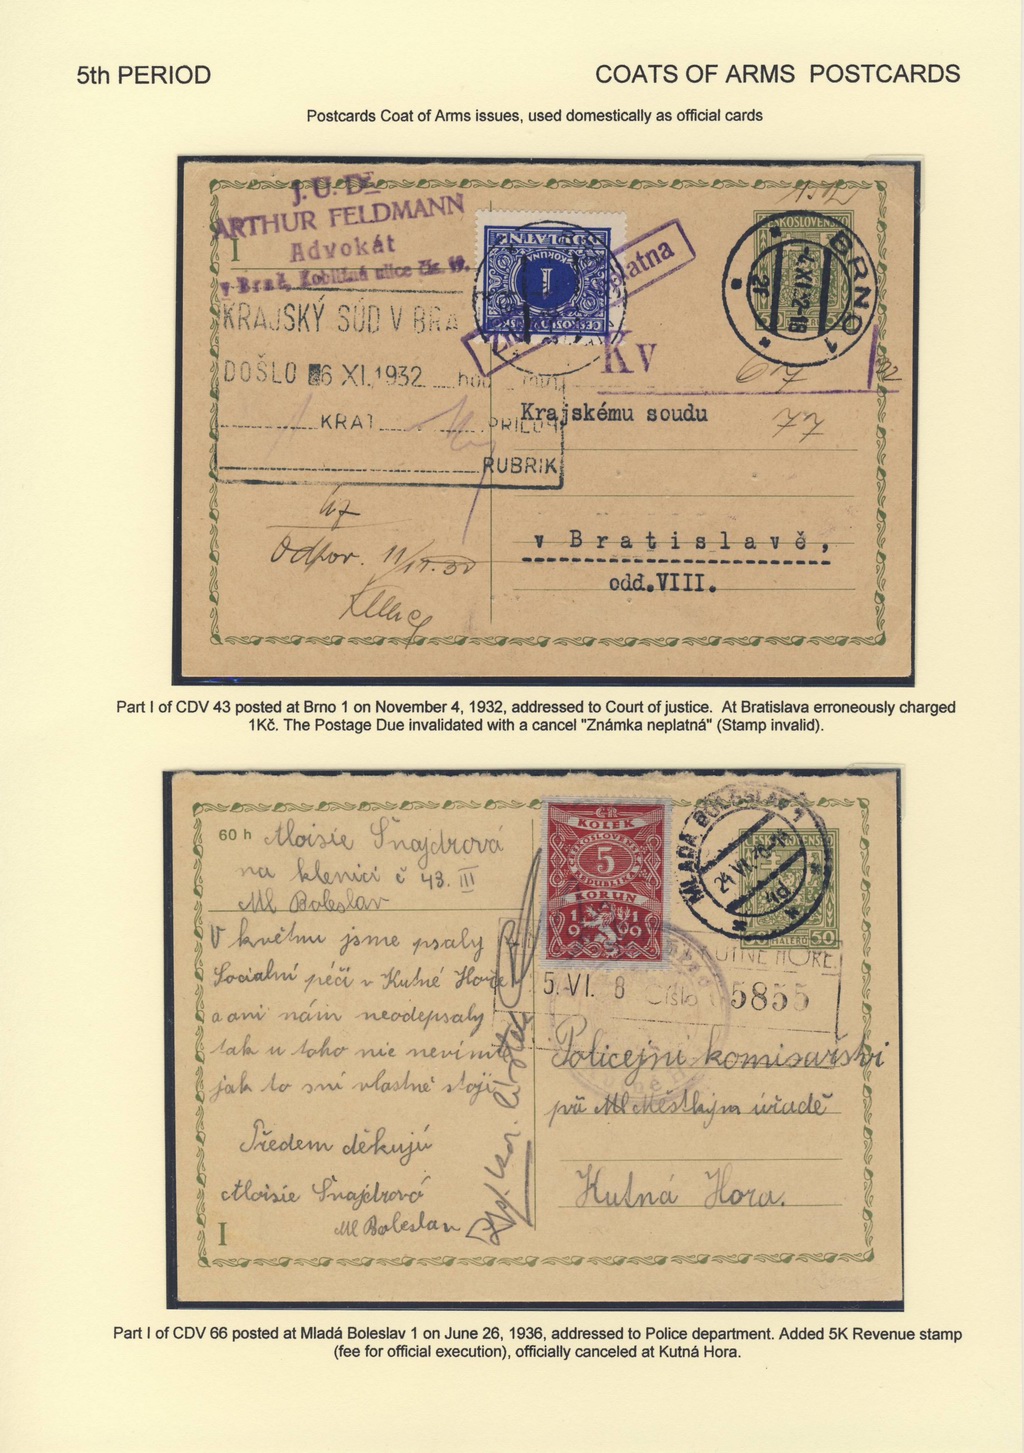 5th PERIOD
COATS OF ARMS POSTCARDS
Postcards Coat of Arms issues, used domestically as official cards
J. U. Dr
ARTHUR FELDMANN
Advokát
v Brně, Kobližná ulice čís. 19.
I
DOPLATNÉ
1
KORUNA
ČESKOSLOVENSKO
neplatná
BRNO 1
4.XI.32-18
KRAJSKÝ SÚD V BRA
DOŠLO 6 XI.1932 hod
KRAT
PRÍLOH
RUBRIK
Kv
67
32
77
Krajskému soudu
v Bratislavě,
odd.VIII.
67
Odpov.
Part I of CDV 43 posted at Brno 1 on November 4, 1932, addressed to Court of justice. At Bratislava erroneously charged
1Kč. The Postage Due invalidated with a cancel "Známka neplatná" (Stamp invalid).
60 h
Aloisie Šnajdrová
na klenici č 43. III
Ml Boleslav
V květnu jsme psaly
Socialní péči v Kutné Hoře
a ani nám neodepsaly
tak u toho nic nevím
jak to sní vlastně stojí
Předem děkuji
Aloisie Šnajdrová
Ml Boleslav
I
ČR
KOLEK
ČESKOSLOVENSKÁ
5
REPUBLIKA
KORUN
1919
MLADÁ BOLESLAV 1
4d
50 HALÉŘŮ 50
KUTNÉ HOŘE
5. VI. 8 Číslo 5855
Policejní komisařství
při Ml Městským úřadě
Kutná Hora.
Part I of CDV 66 posted at Mladá Boleslav 1 on June 26, 1936, addressed to Police department. Added 5K Revenue stamp
(fee for official execution), officially canceled at Kutná Hora.